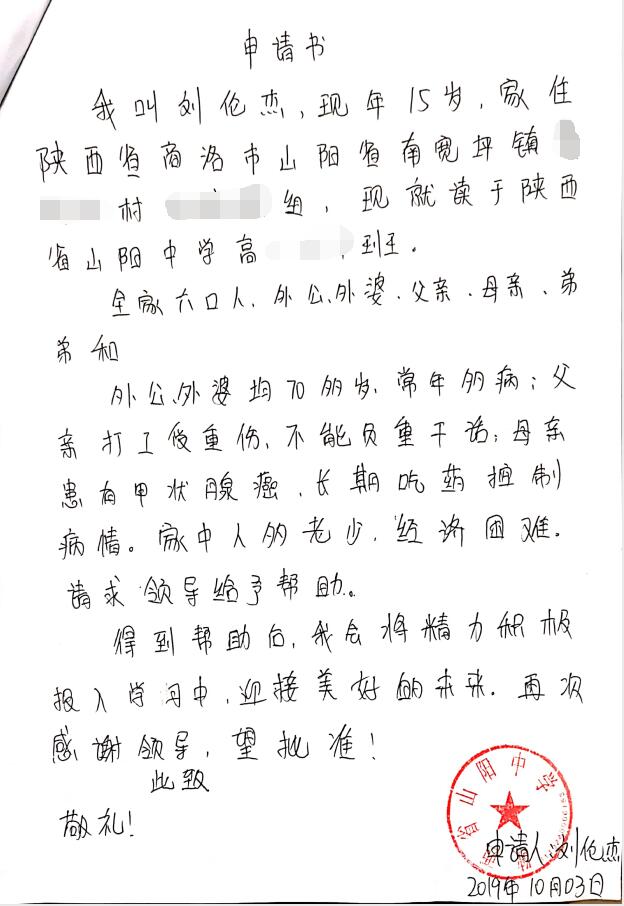 申请书
我叫刘伦杰,现年15岁,家住
陕西省商洛市山阳省南宽坪镇
村 组,现就读于陕西
省山阳中学高 班。
全家六口人、外公、外婆、父亲、母亲、弟
弟和
外公、外婆均70多岁,常年多病;父
亲打工受重伤,不能负重干活;母亲
患有甲状腺癌、长期吃药控制
病情。家中人多老少,经济困难。
请求领导给予帮助。
得到帮助后,我会将精力积极
投入学习中,迎接美好的未来。再次
感谢领导,望批准!
此致
敬礼!
山阳中学
申请人:刘伦杰
2019年10月03日